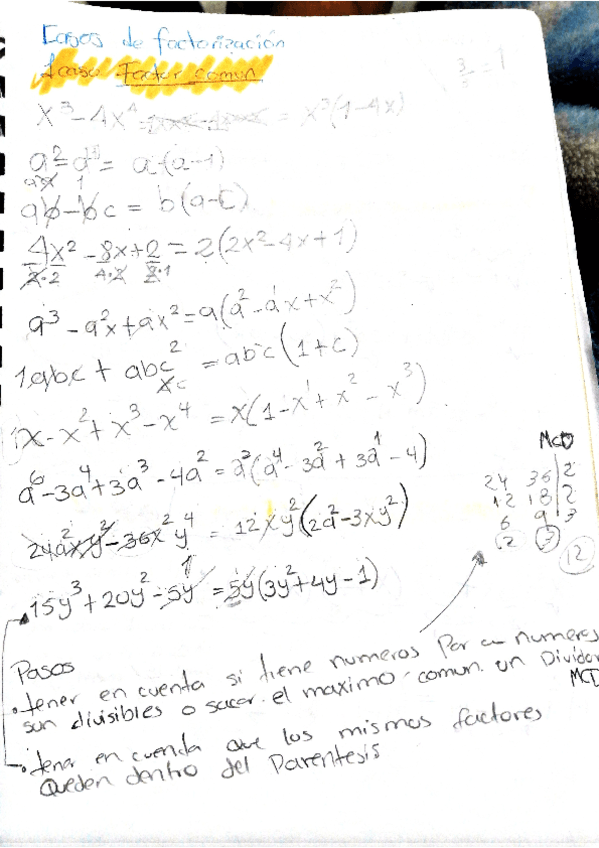 Casos de factorización
1 caso Factor comun
x³ - 4x⁴ = x³(1-4x)
a² - a¹ = a(a-1)
ab - bc = b(a-c)
4x² - 8x + 2 = 2(2x² - 4x + 1)
2·2 4·2 2·1
a³ - a²x + ax² = a(a² - ax + x²)
1abc + abc² = abc(1+c)
x - x² + x³ - x⁴ = x(1 - x¹ + x² - x³)
a⁶ - 3a⁴ + 3a³ - 4a² = a²(a⁴ - 3a² + 3a¹ - 4)
24a²xy² - 36x²y⁴ = 12xy²(2a² - 3xy²)
15y³ + 20y² - 5y¹ = 5y(3y² + 4y - 1)
MCD
24 36 | 2
12 18 | 2
6 9 | 3
2 3
12
Pasos
• tener en cuenta si tiene numeros Por numeros
son divisibles o sacar el maximo comun un Dividor
MCD
• tener en cuenta que los mismos factores
Queden dentro del Parentesis